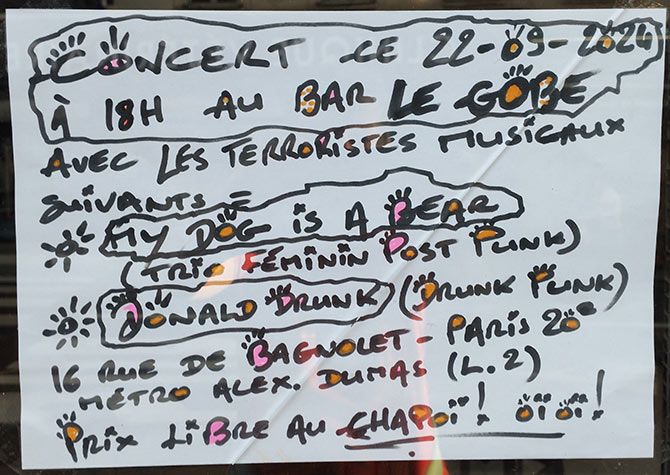 CONCERT CE 22-09-2024
À 18H AU BAR LE GOBE
AVEC LES TERRORISTES MUSICAUX
SUIVANTS =
MY DOG iS A BEAR
(TRIO FÉMININ POST PUNK)
DONALD DRUNK (DRUNK PUNK)
16 RUE DE BAGNOLET - PARIS 20e
MÉTRO ALEX. DUMAS (L.2)
PRIX LiBRE AU CHAPOï! öï öï!